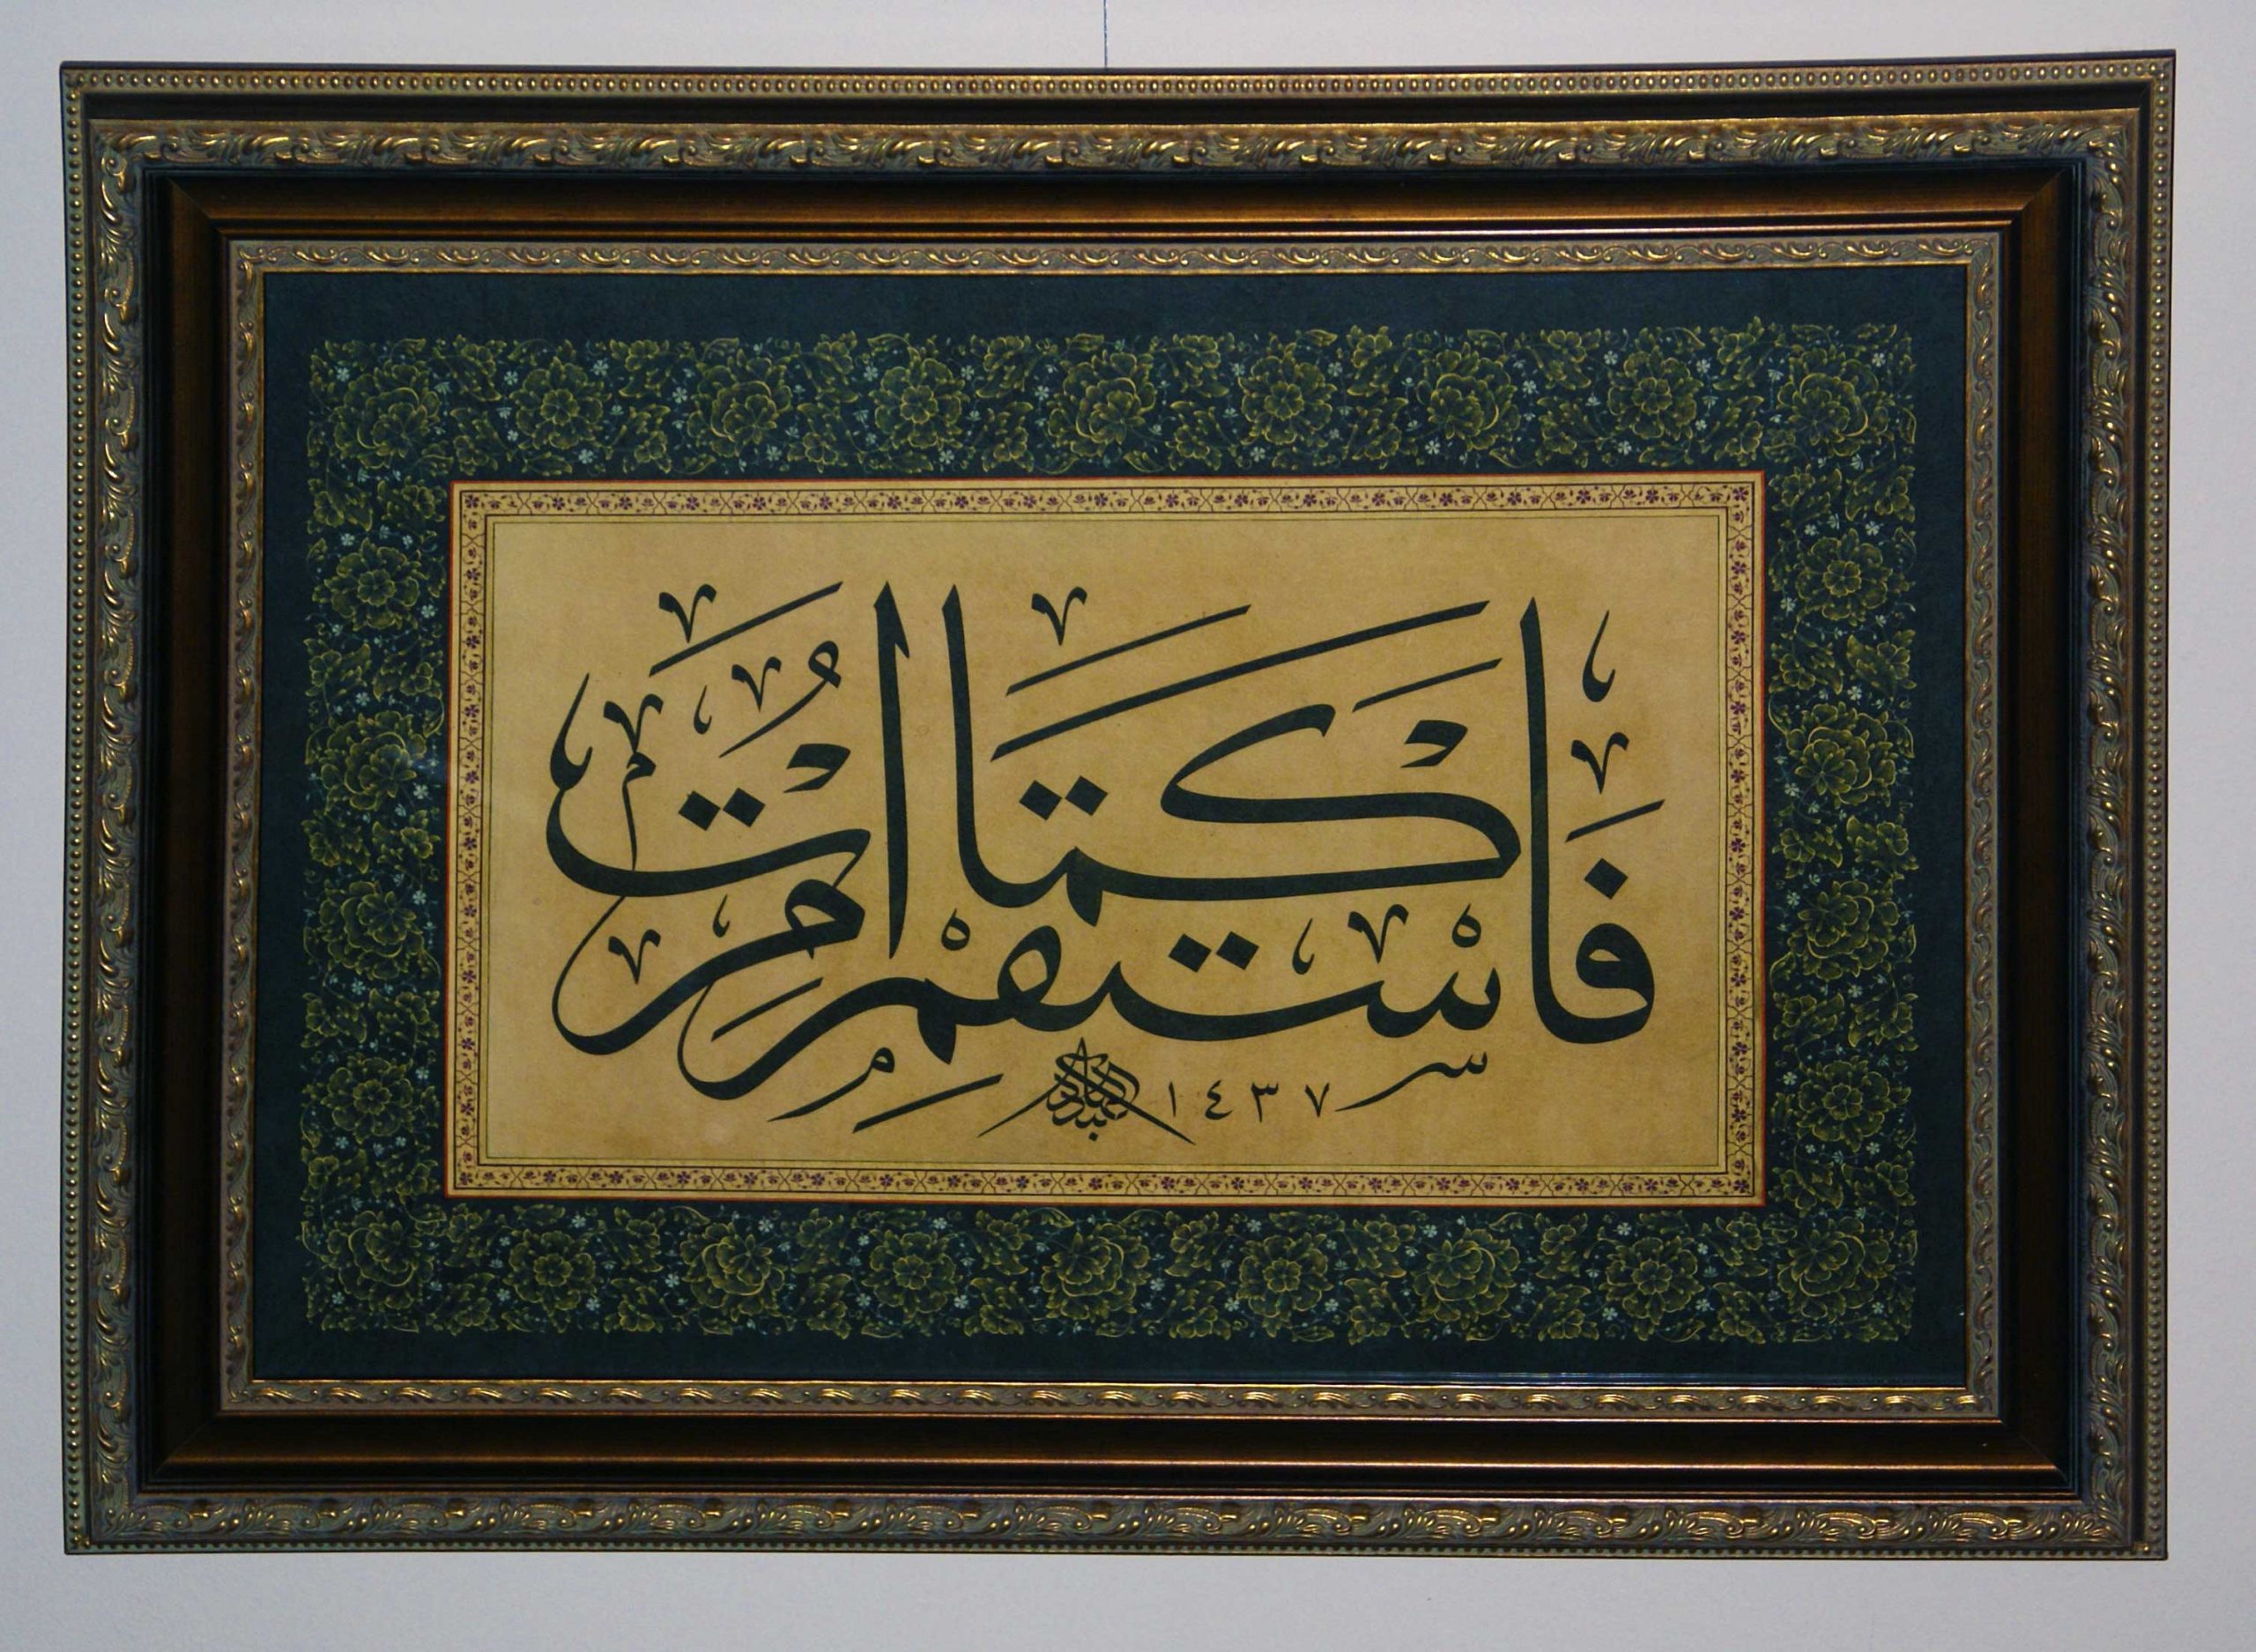 فَاسْتَقِمْ كَمَا أُمِرْتَ
١٤٣٧